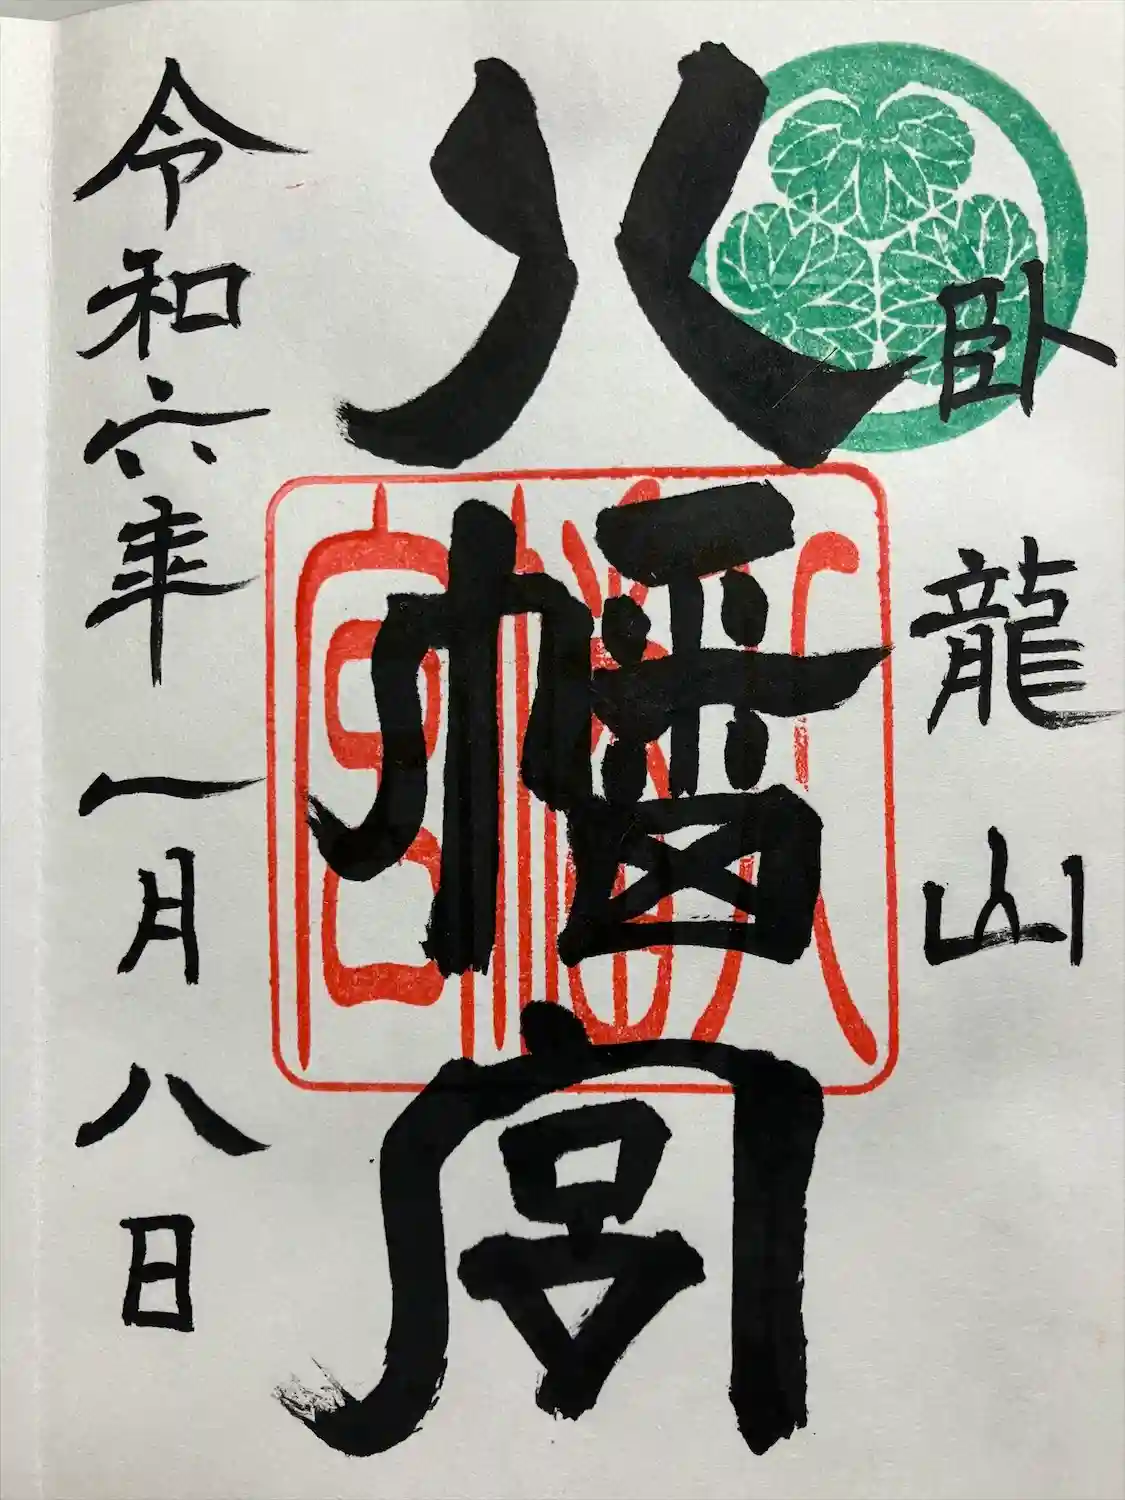 臥龍山
八幡宮
八幡宮
令和六年一月八日